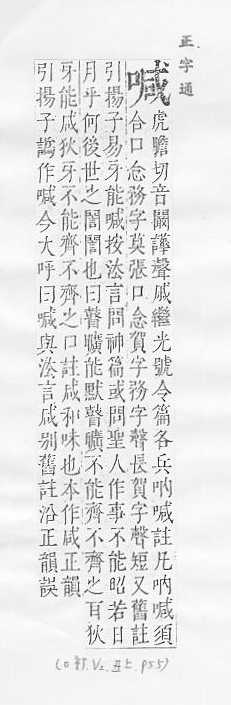 正字通
喊
虎噡切音闞譁聲戚繼光號令篇各兵吶喊註凡吶喊須
合口念務字莫張口念賀字務字聲長賀字聲短又舊註
引揚子易牙能喊按法言問神篇或問聖人作事不能昭若日
月乎何後世之誾誾也曰瞽曠能默瞽曠不能齊不齊之耳狄
牙能咸狄牙不能齊不齊之口註咸和味也本作咸正韻
引揚子譌作喊今大呼曰喊與法言咸別舊註沿正韻誤
P55)